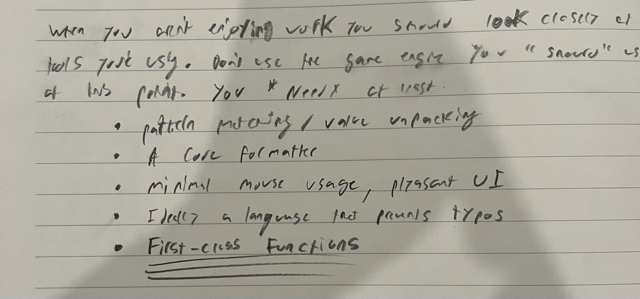 When you aren't enjoying work you should look closely at
tools you're using. Don't use the game engine you "should" us
at this point. You *Need* at least.
• pattern matching / value unpacking
• A code formatter
• minimal mouse usage, pleasant UI
• Ideally a language that prevents typos
• First-class Functions